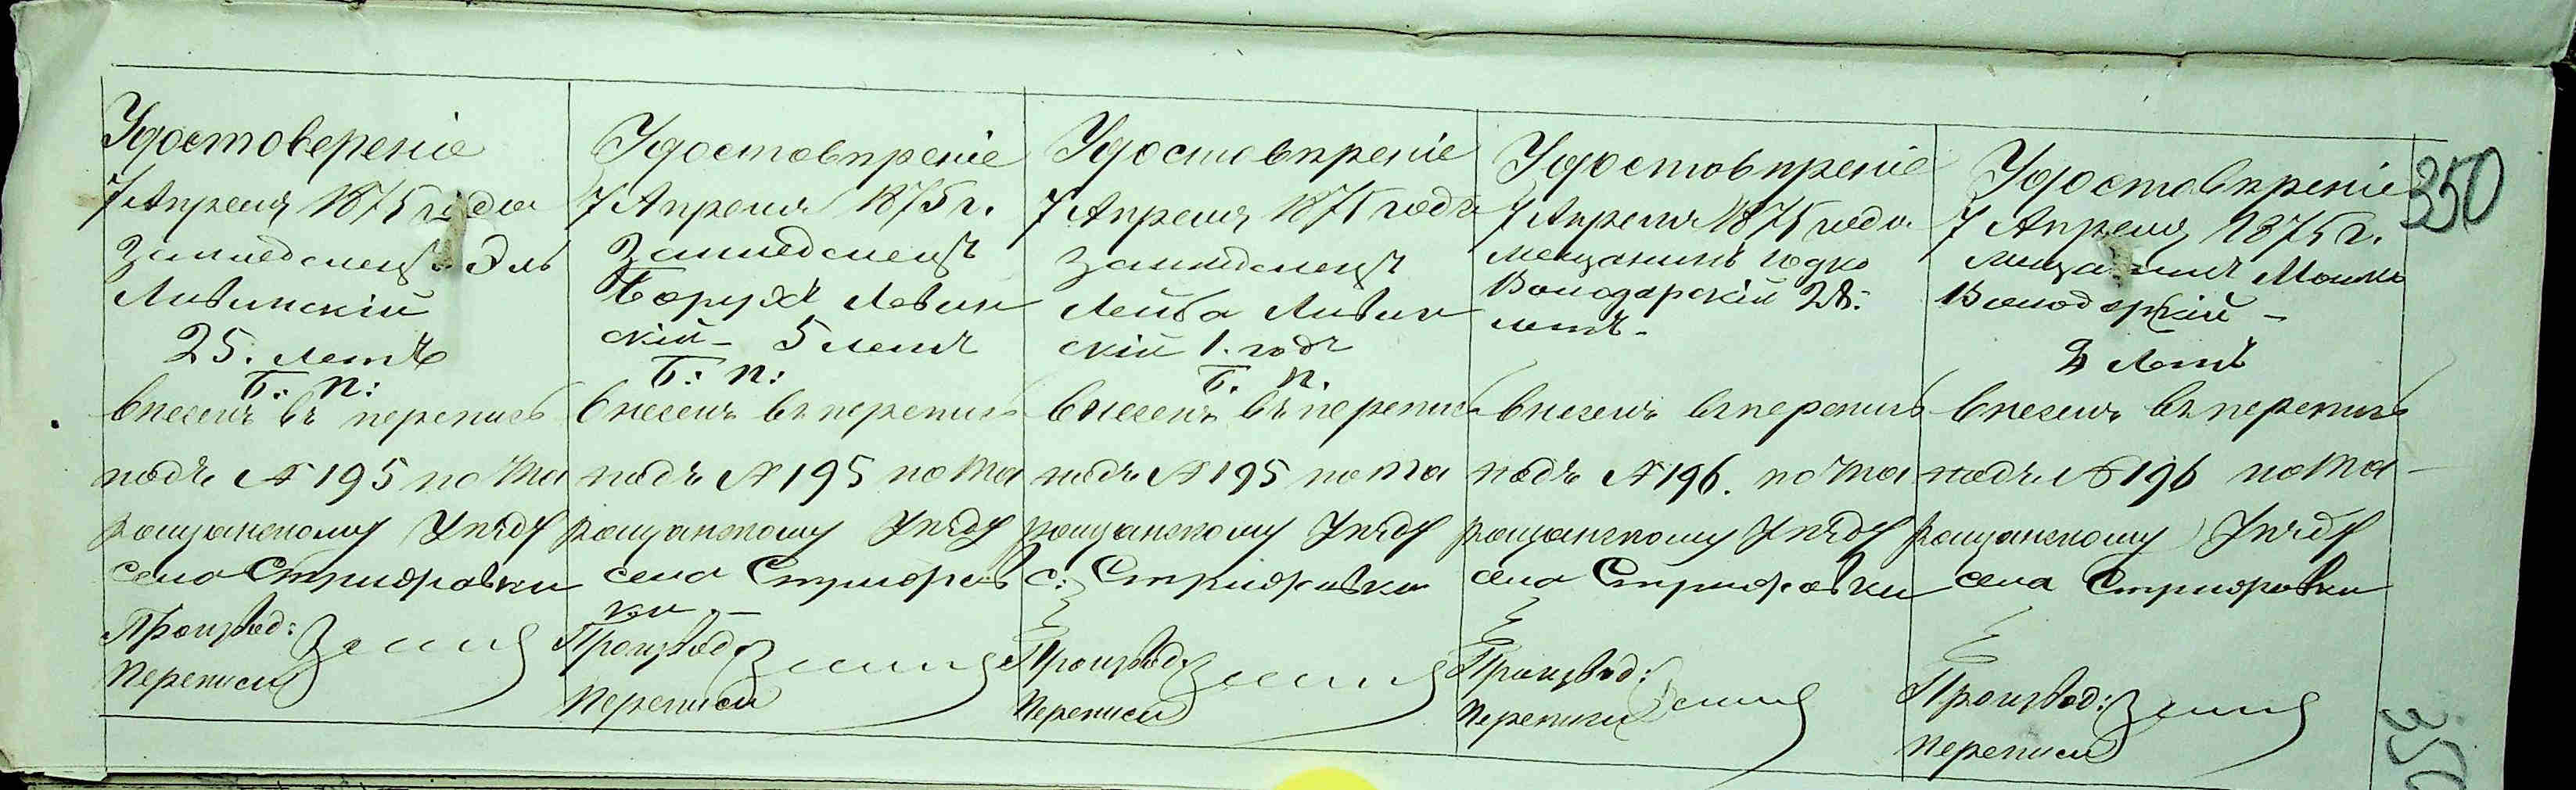 Удостоверение
7 Апреля 1875 года
Земледелецъ Эль
Левинский
25. летъ
Б: П:
внесенъ въ перепись
подъ № 195 по Та
ращанскому Уѣзду
села Стрижовки
Производ:
Переписи
Удостовѣрение
7 Апреля 1875 г.
Земледелецъ
Борухъ Левин
ский - 5 летъ
Б: П:
внесенъ въ перепись
подъ № 195 по Та
ращанскому Уѣзду
села Стрижов
ки. -
Производ:
Переписи
Удостовѣрение
7 Апреля 1875 года
Земледелецъ
Лейба Левин
ский 1. годъ
Б. П.
внесенъ въ перепись
подъ № 195 по Та
ращанскому Уѣзду
с: Стрижовки
Производ:
Переписи
Удостовѣрение
7 Апреля 1875 года
мещанинъ
Володарский 28:
летъ -
внесенъ въ перепись
подъ № 196. по Та
ращанскому Уѣзду
села Стрижовки
Производ:
Переписи
Удостовѣрение
7 Апреля 1875 г.
мещанинъ Мошко
Володарский -
летъ
внесенъ въ перепись
подъ № 196 по Та-
ращанскому Уѣзду
села Стрижовки
Производ:
Переписи
350